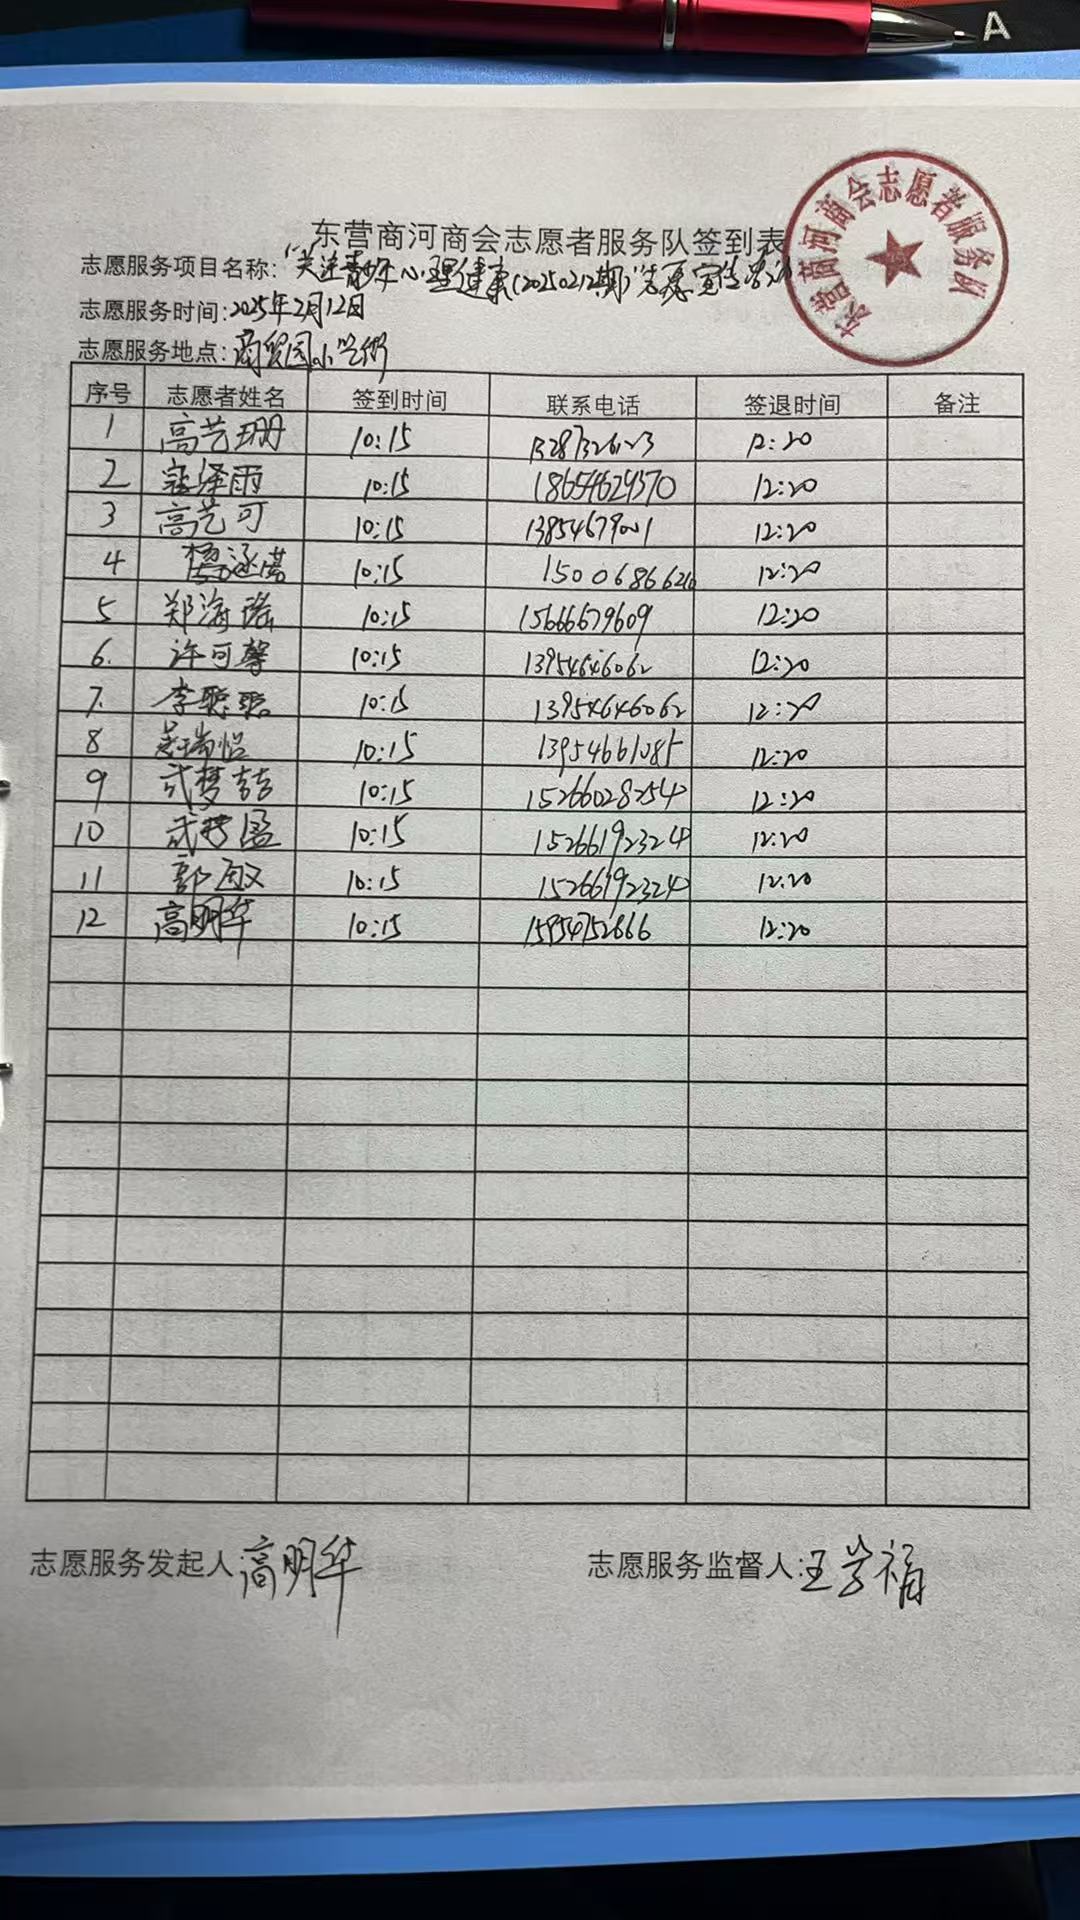 A
东营商河商会志愿者服务队
东营商河商会志愿者服务队签到表
志愿服务项目名称:"关注青少年心理健康(20250212期)"志愿宣传活动
志愿服务时间:2025年2月12日
志愿服务地点:商贸园小学街
序号 志愿者姓名 签到时间 联系电话 签退时间 备注
1 高艺珊 10:15 12:20
2 泽雨 10:15 18654624370 12:20
3 高艺可 10:15 13854679001 12:20
4 10:15 15006866210 12:20
5 郑海瑶 10:15 15666679609 12:20
6. 许可馨 10:15 13954646062 12:20
7. 李聪聪 10:15 13954646062 12:20
8 吴瑞怡 10:15 13954661085 12:20
9 武梦喆 10:15 15266028254 12:20
10 武梦盈 10:15 15266192324 12:20
11 郭敏 10:15 15266192324 12:20
12 高明华 10:15 15954752666 12:20
志愿服务发起人:高明华 志愿服务监督人:王学福